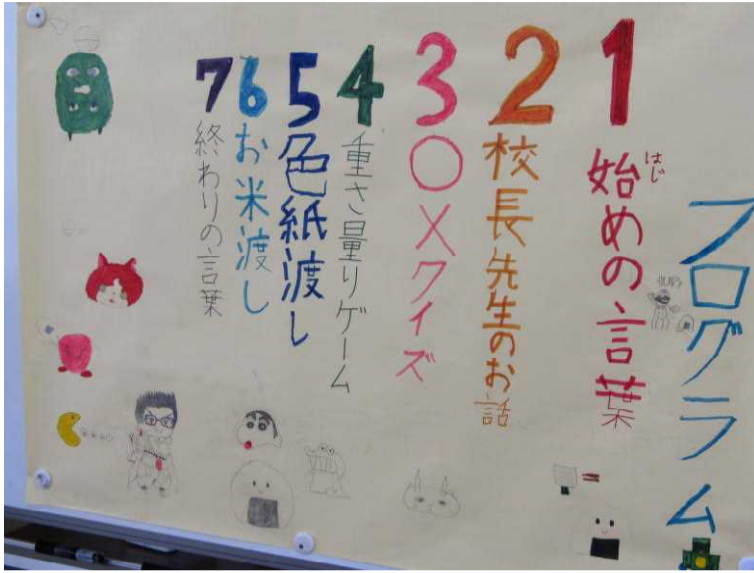 プログラム
1 始めの言葉
はじ
2 校長先生のお話
3 ○×クイズ
4 重さ量りゲーム
5 色紙渡し
6 お米渡し
7 終わりの言葉